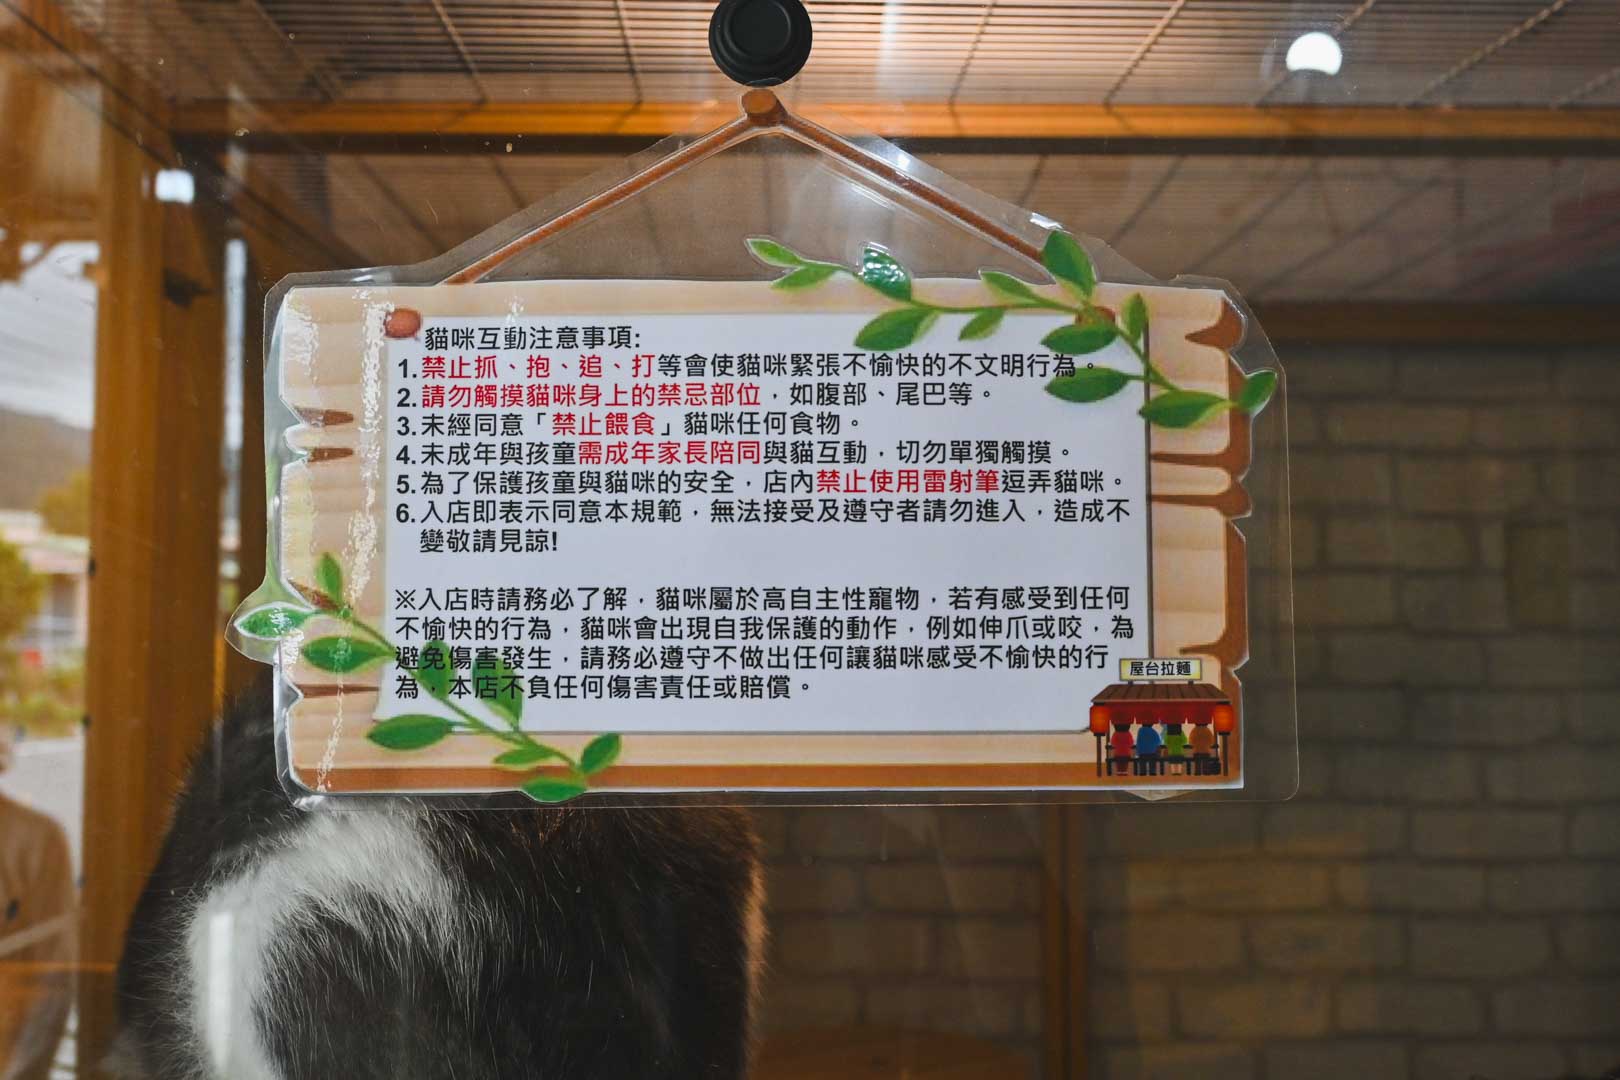 貓咪互動注意事項:
1.禁止抓、抱、追、打等會使貓咪緊張不愉快的不文明行為。
2.請勿觸摸貓咪身上的禁忌部位，如腹部、尾巴等。
3.未經同意「禁止餵食」貓咪任何食物。
4.未成年與孩童需成年家長陪同與貓互動，切勿單獨觸摸。
5.為了保護孩童與貓咪的安全，店內禁止使用雷射筆逗弄貓咪。
6.入店即表示同意本規範，無法接受及遵守者請勿進入，造成不
變敬請見諒!
※入店時請務必了解，貓咪屬於高自主性寵物，若有感受到任何
不愉快的行為，貓咪會出現自我保護的動作，例如伸爪或咬，為
避免傷害發生，請務必遵守不做出任何讓貓咪感受不愉快的行
為，本店不負任何傷害責任或賠償。
屋台拉麵